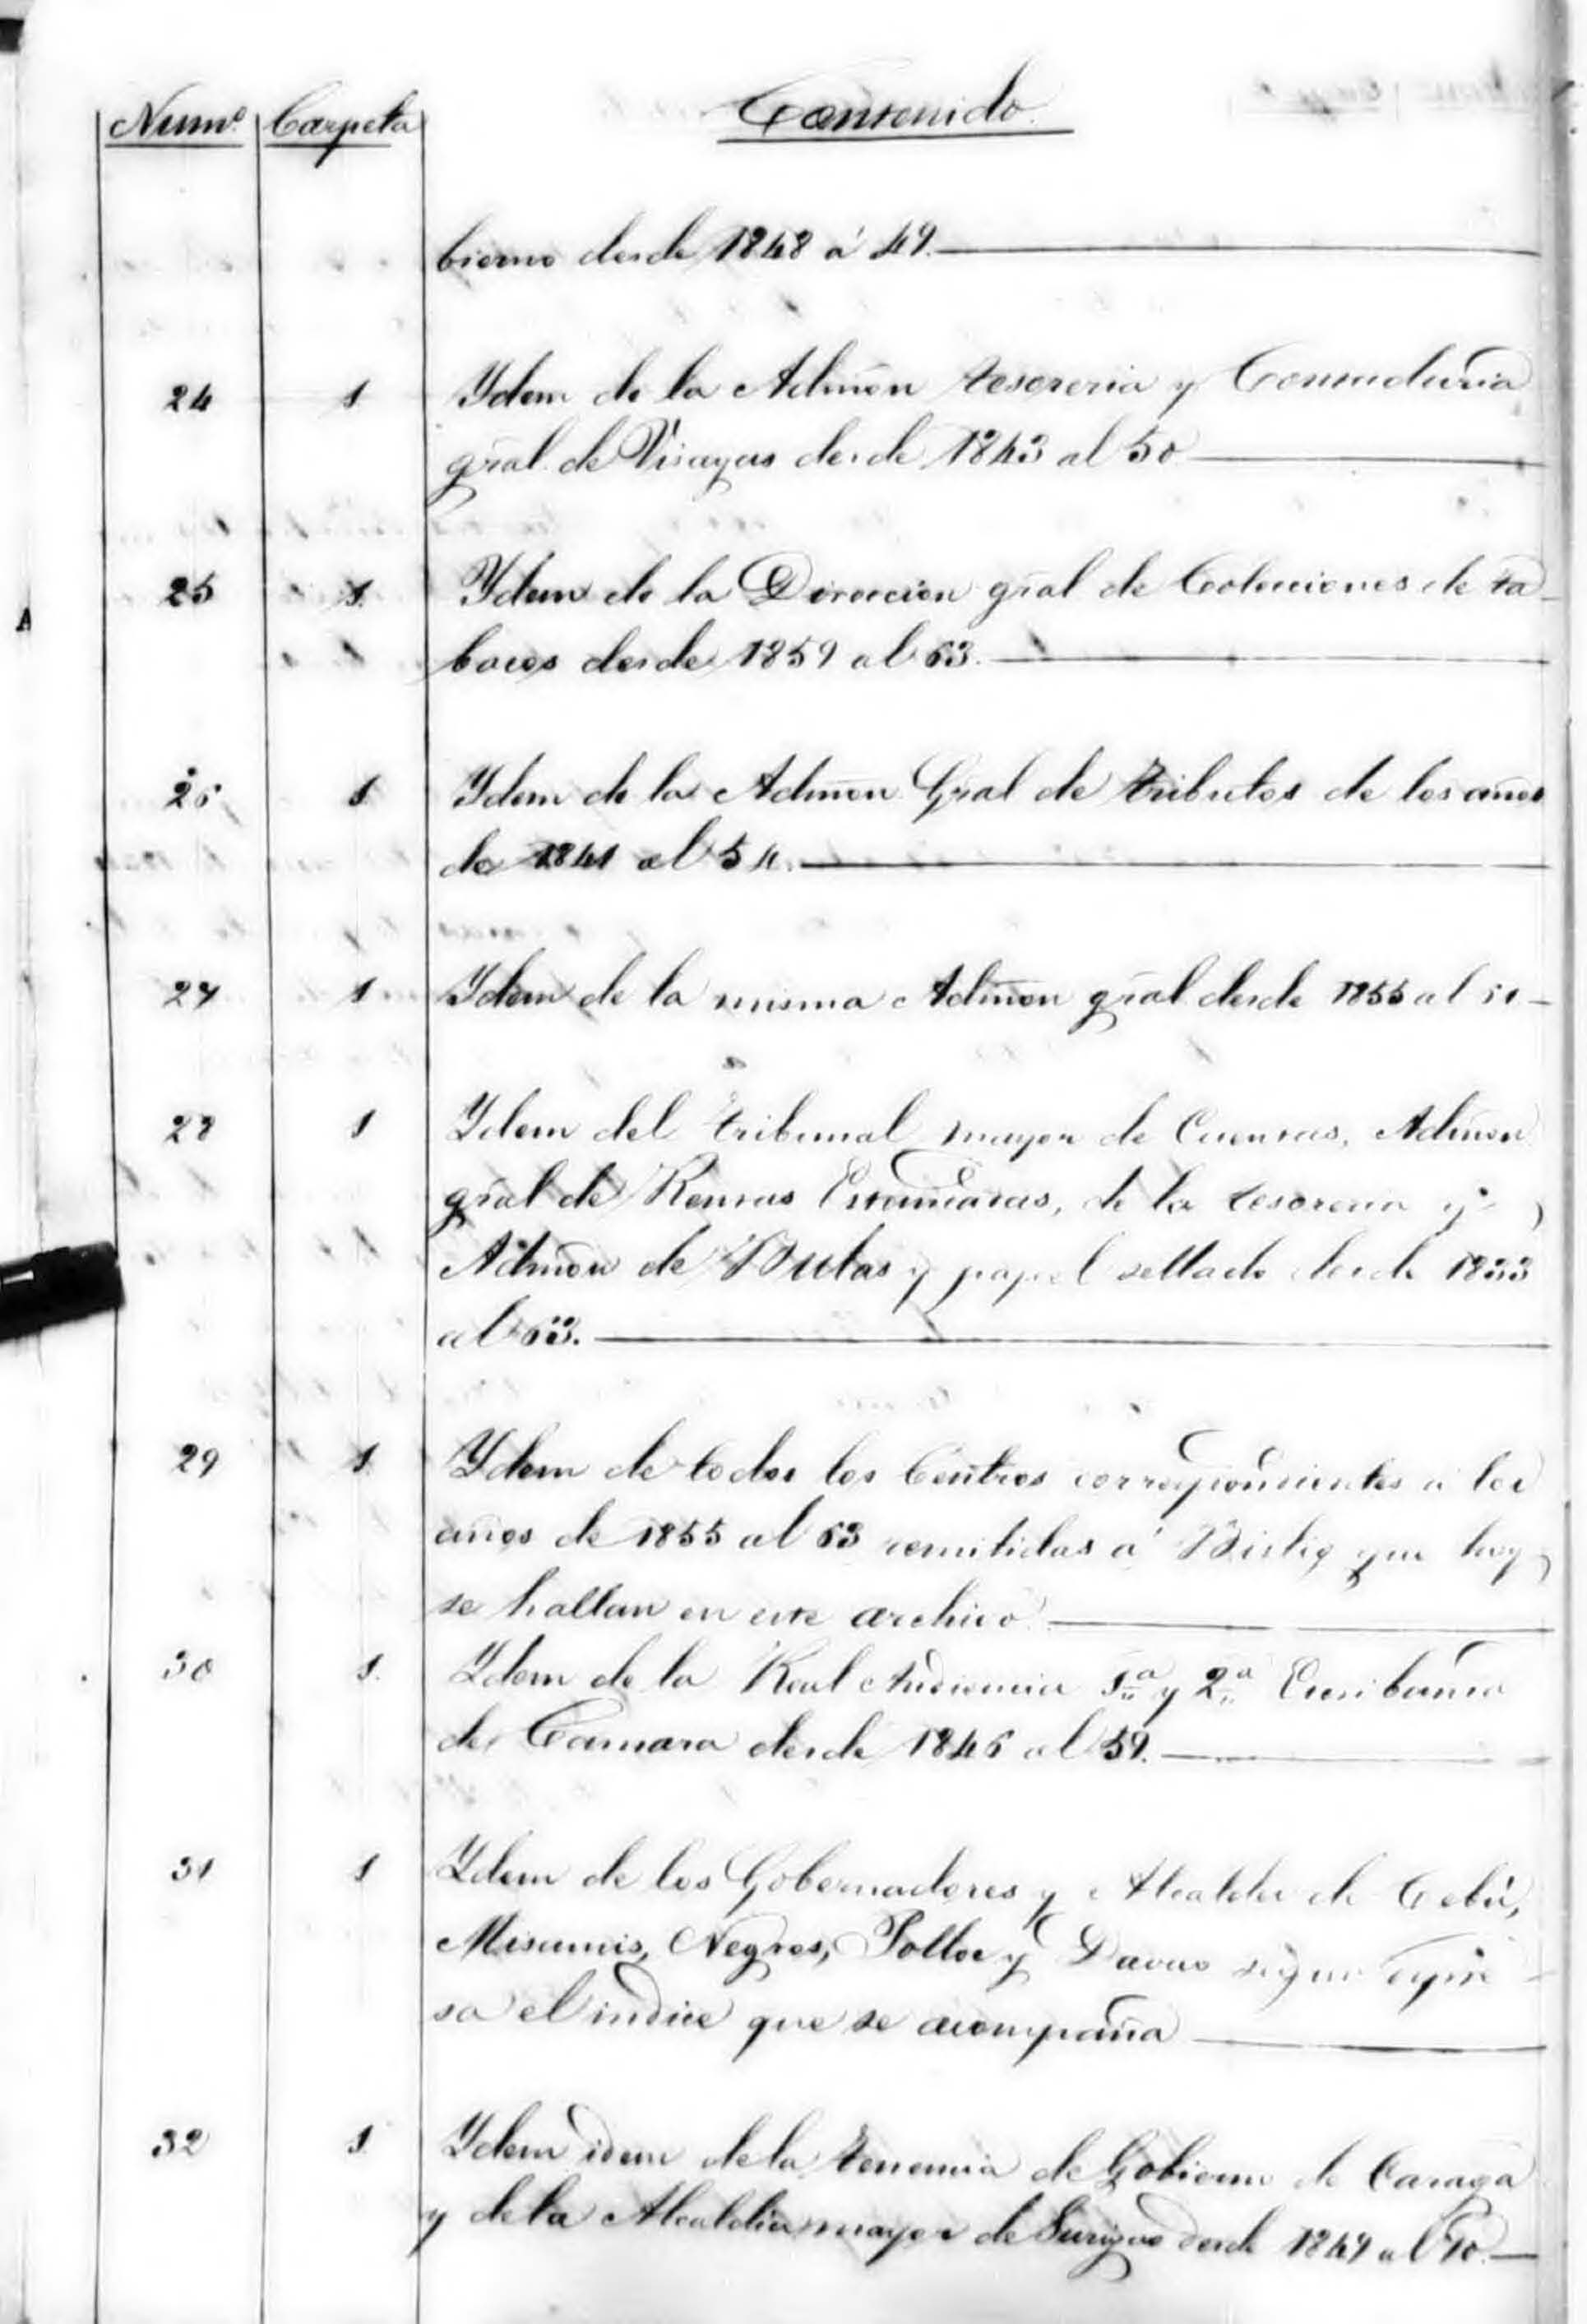 Numº Carpeta Contenido.
bierno desde 1848 á 49.
24 1 Ydem de la Admōn tesoreria y Contaduria
gral. de Visayas desde 1843 al 50
25 1. Ydem de la Direccion gral de Colecciones de ta
bacos desde 1859 al 63.
26 1 Ydem de la Admōn Gral de tributos de los años
de 1841 al 54.
27 1 Ydem de la misma Admōn gral desde 1855 al
28 1 Ydem del tribunal mayor de Cuentas, Admōn
gral de Rentas Estancadas, de la tesoreria y
Admōn de Bulas y papel sellado desde 1833
al 63.
29 1. Ydem de todos los Centros correspondientes á los
años de 1855 al 63 remitidas á Bislig que hoy
se hallan en este archivo.
30 1. Ydem de la Real Audiencia 1ª y 2ª Escribania
de Camara desde 1846 al 59.
31 1 Ydem de los Gobernadores y Alcaldes de Cebú,
Misamis, Negros, Polloc y Davao segun espre
sa el indice que se acompaña
32 1. Ydem idem de la tenencia de Gobierno de Caraga
y de la Alcaldia mayor de Surigao desde 1849 al